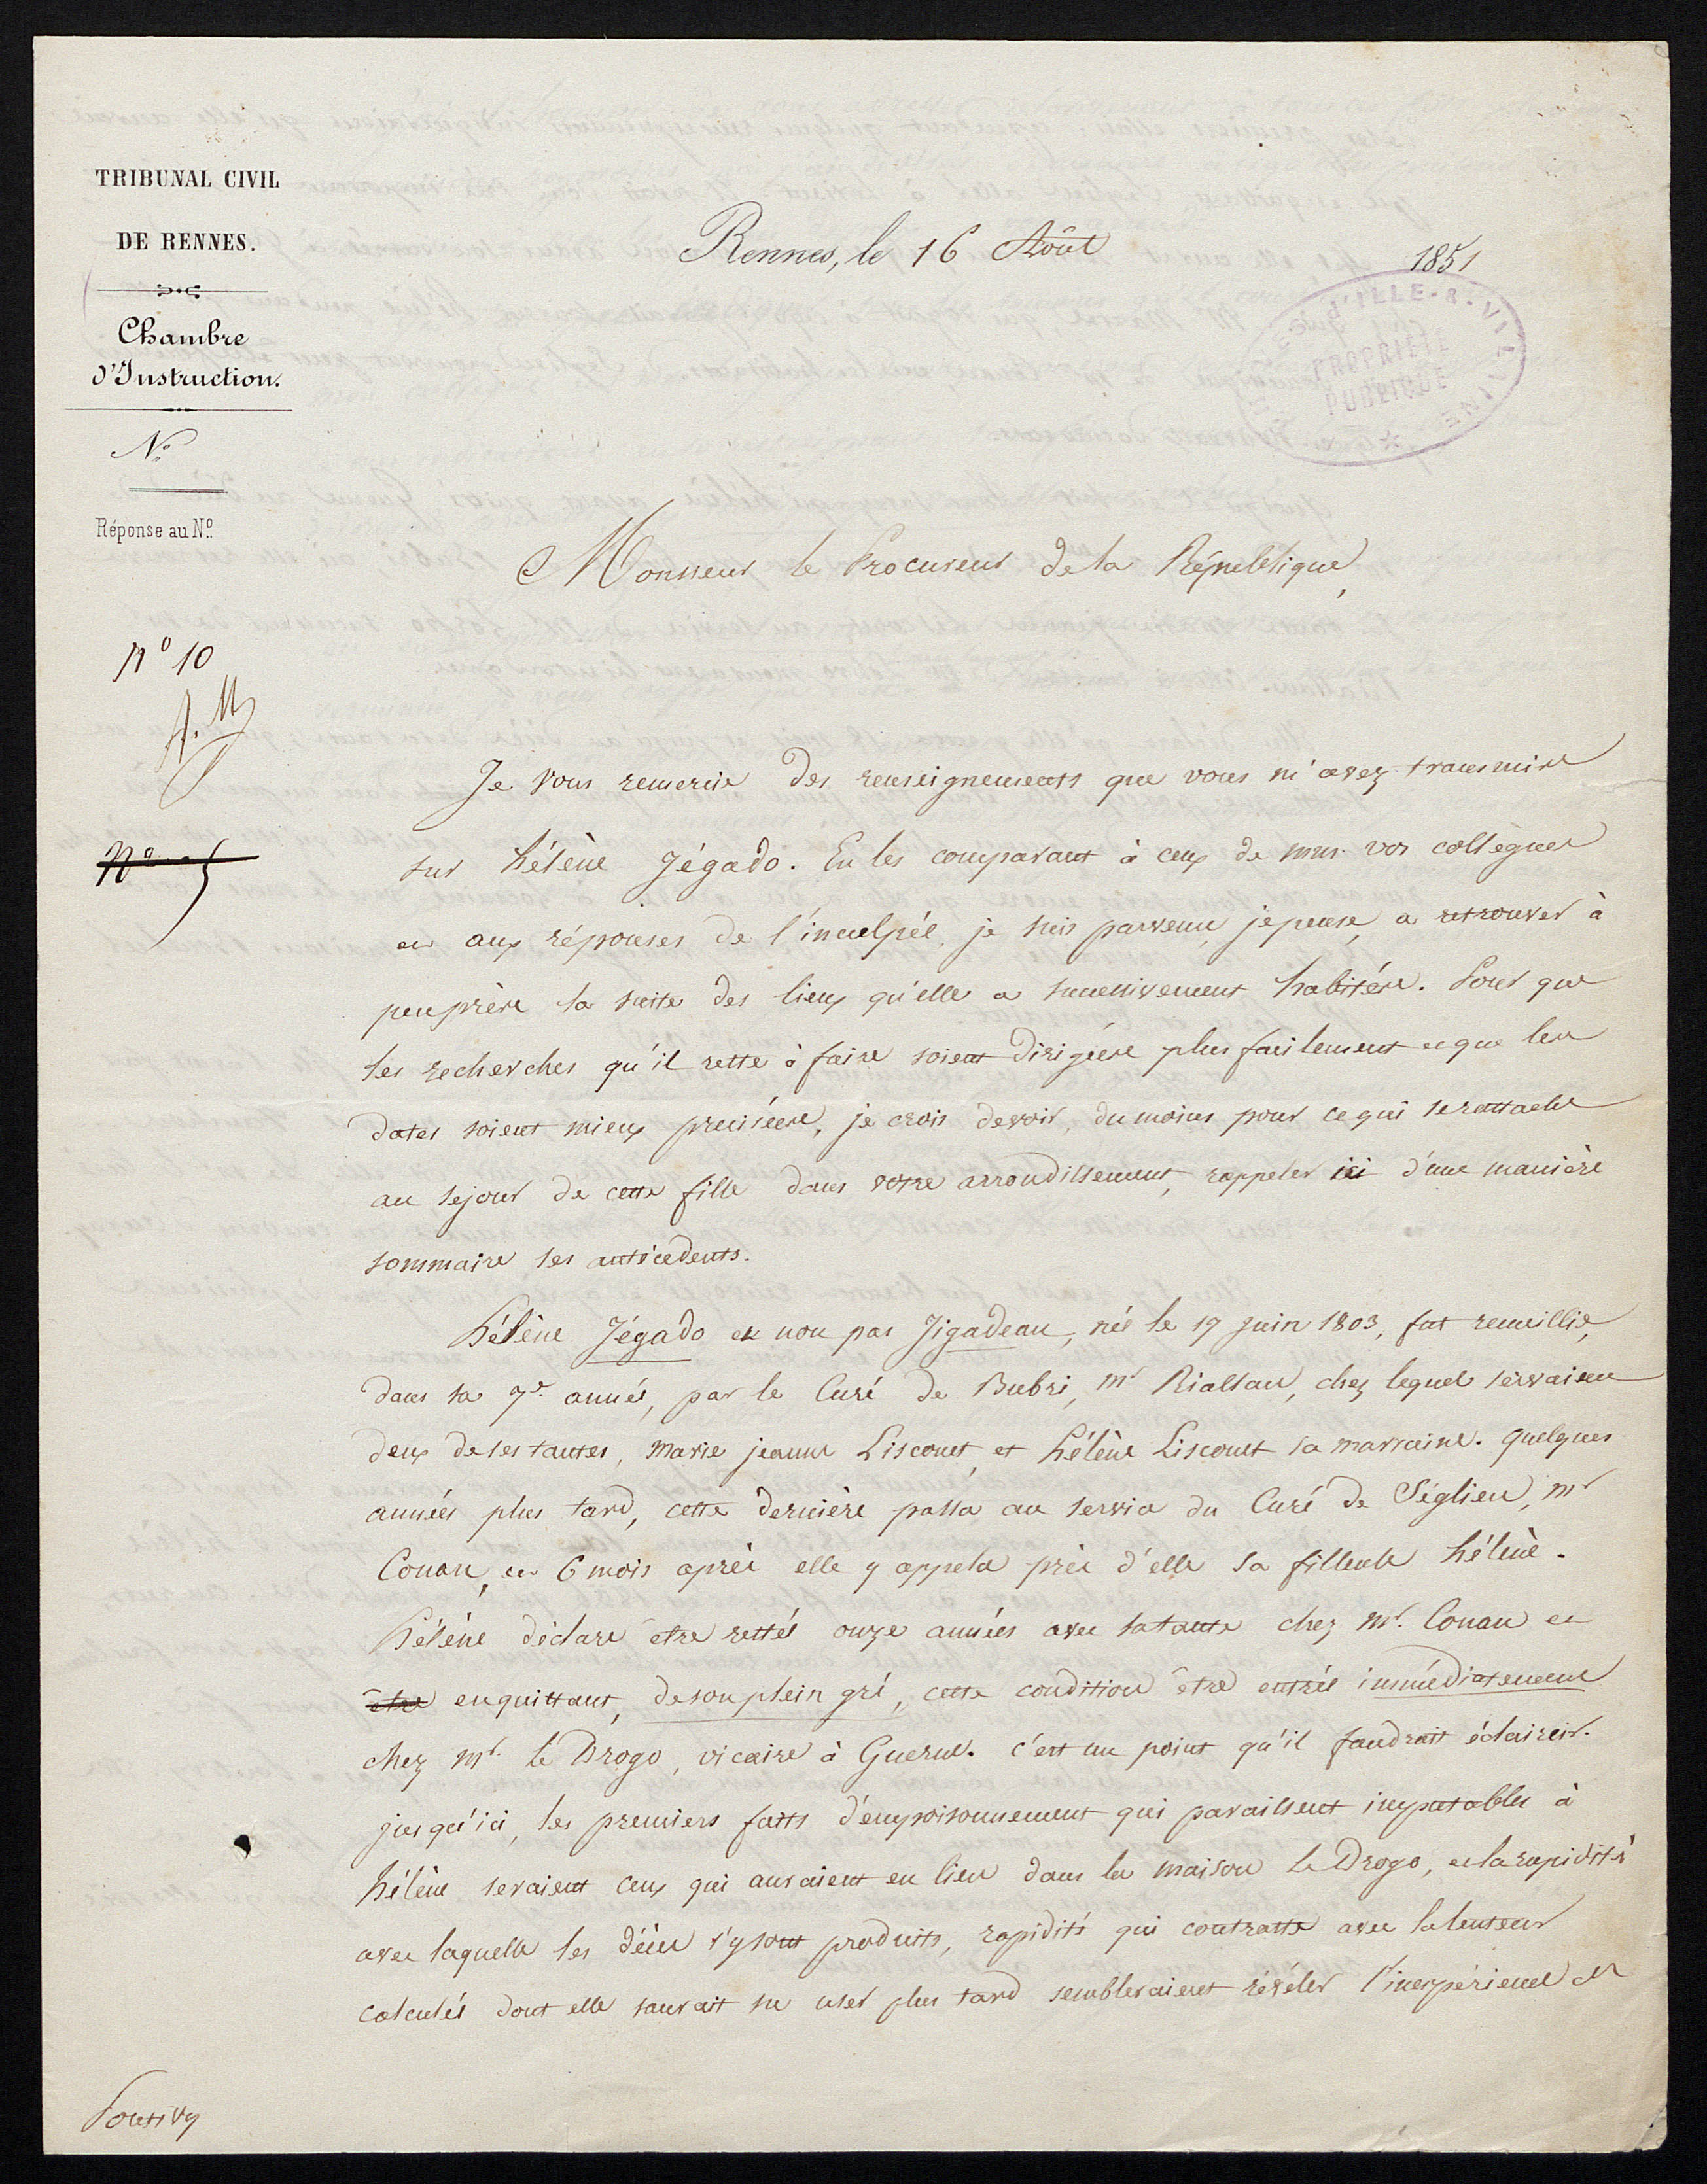 TRIBUNAL CIVIL
DE RENNES.
Chambre
d'Instruction.
N°
Réponse au N°.
Rennes, le 16 Août 1851
D'ILLE-&-VILAINE
PROPRIÉTÉ
PUBLIQUE
Monsieur le Procureur de la République,
N° 10
N° 5
Je vous remercie des renseignements que vous m'avez transmis
sur hélène Jégado. En les comparant à ceux de mrs vos collègues
et aux réponses de l'inculpée, je suis parvenu, je pense, a retrouver à
peu près la suite des lieux qu'elle a successivement habités. Pour que
les recherches qu'il reste à faire soient dirigées plus facilement et que les
dates soient mieux precisées, je crois devoir, du moins pour ce qui se rattache
au sejour de cette fille dans votre arrondissement, rappeler ici d'une manière
sommaire ses antécedents.
hélène Jégado et non pas Jigadeau, née le 17 juin 1803, fut recueillie,
dans sa 7e. année, par le Curé de Bubri, mr Riallau, chez lequel servaient
deux de ses tantes, marie jeanne Liscouet, et hélène Liscouet sa marraine. quelques
années plus tard, cette dernière passa au service du Curé de Séglien, mr
Conan, et 6 mois après elle y appela près d'elle sa filleule hélène.
hélène déclare être restée onze années avec sa tante chez mr. Conan et
être en quittant, de son plein gré, cette condition être entrée immédiatement
chez mr. le Drogo, vicaire à Guerne. c'est un point qu'il faudrait éclaircir.
jusqu'ici, les premiers faits d'empoisonnement qui paraissent imputables à
hélène seraient ceux qui auraient eu lieu dans la maison le Drogo, et la rapidité
avec laquelle les décès s'y sont produits, rapidité qui contraste avec la lenteur
calculée dont elle saurait su user plus tard sembleraient révéler l'inexpérience et
Pontivy